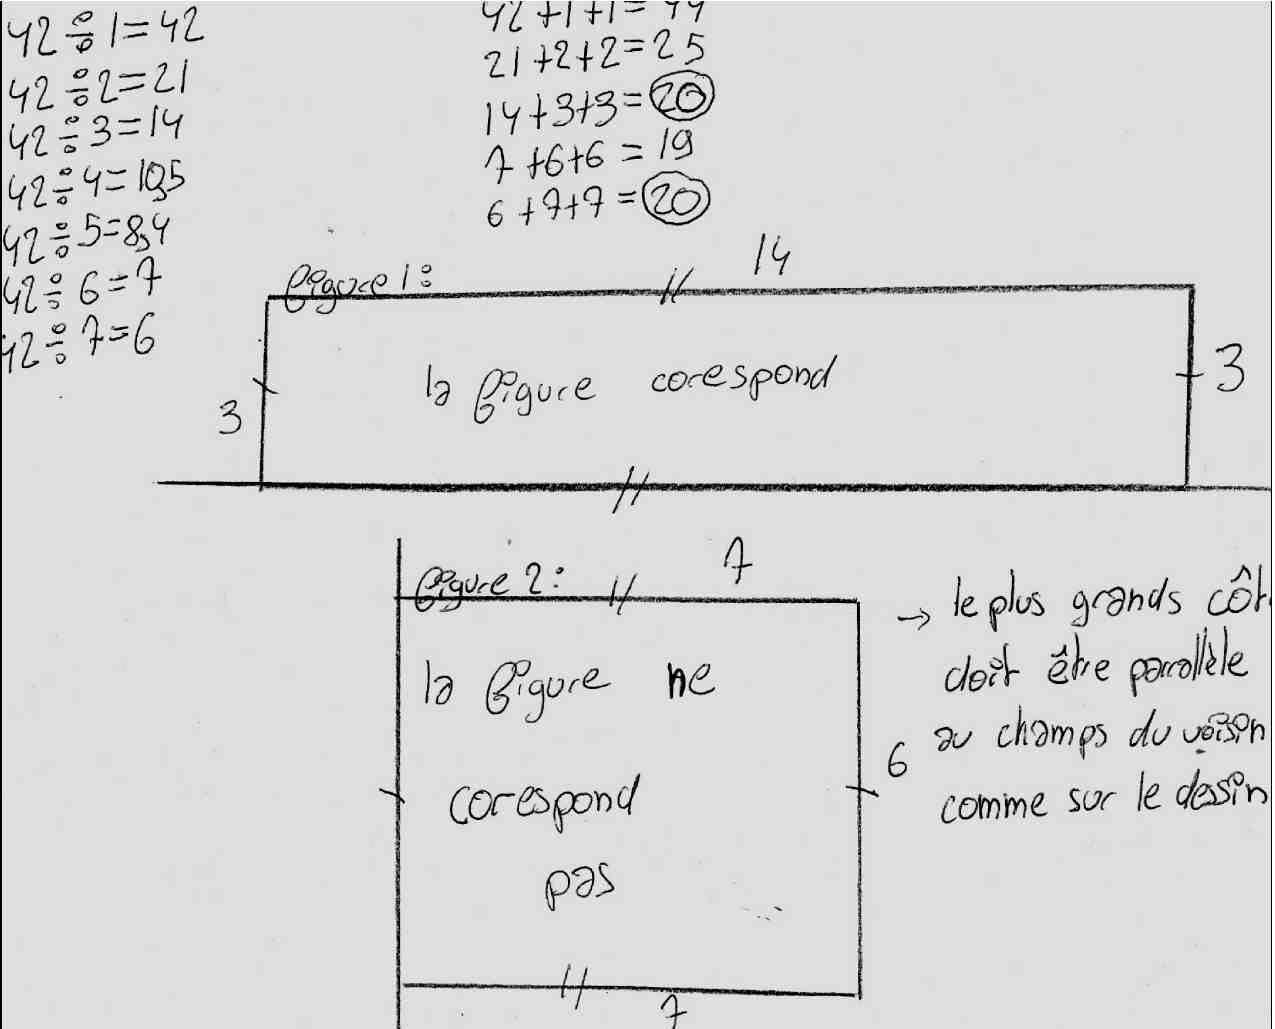 42÷1=42
42÷2=21
42÷3=14
42÷4=10,5
42÷5=8,4
42÷6=7
42÷7=6
42+1+1=44
21+2+2=25
14+3+3=20
7+6+6=19
6+7+7=20
14
figure 1:
la figure corespond
3
3
7
figure 2:
la figure ne
corespond
pas
6
7
→ le plus grands côt
doit être parrallèle
au champs du voisin
comme sur le dessin